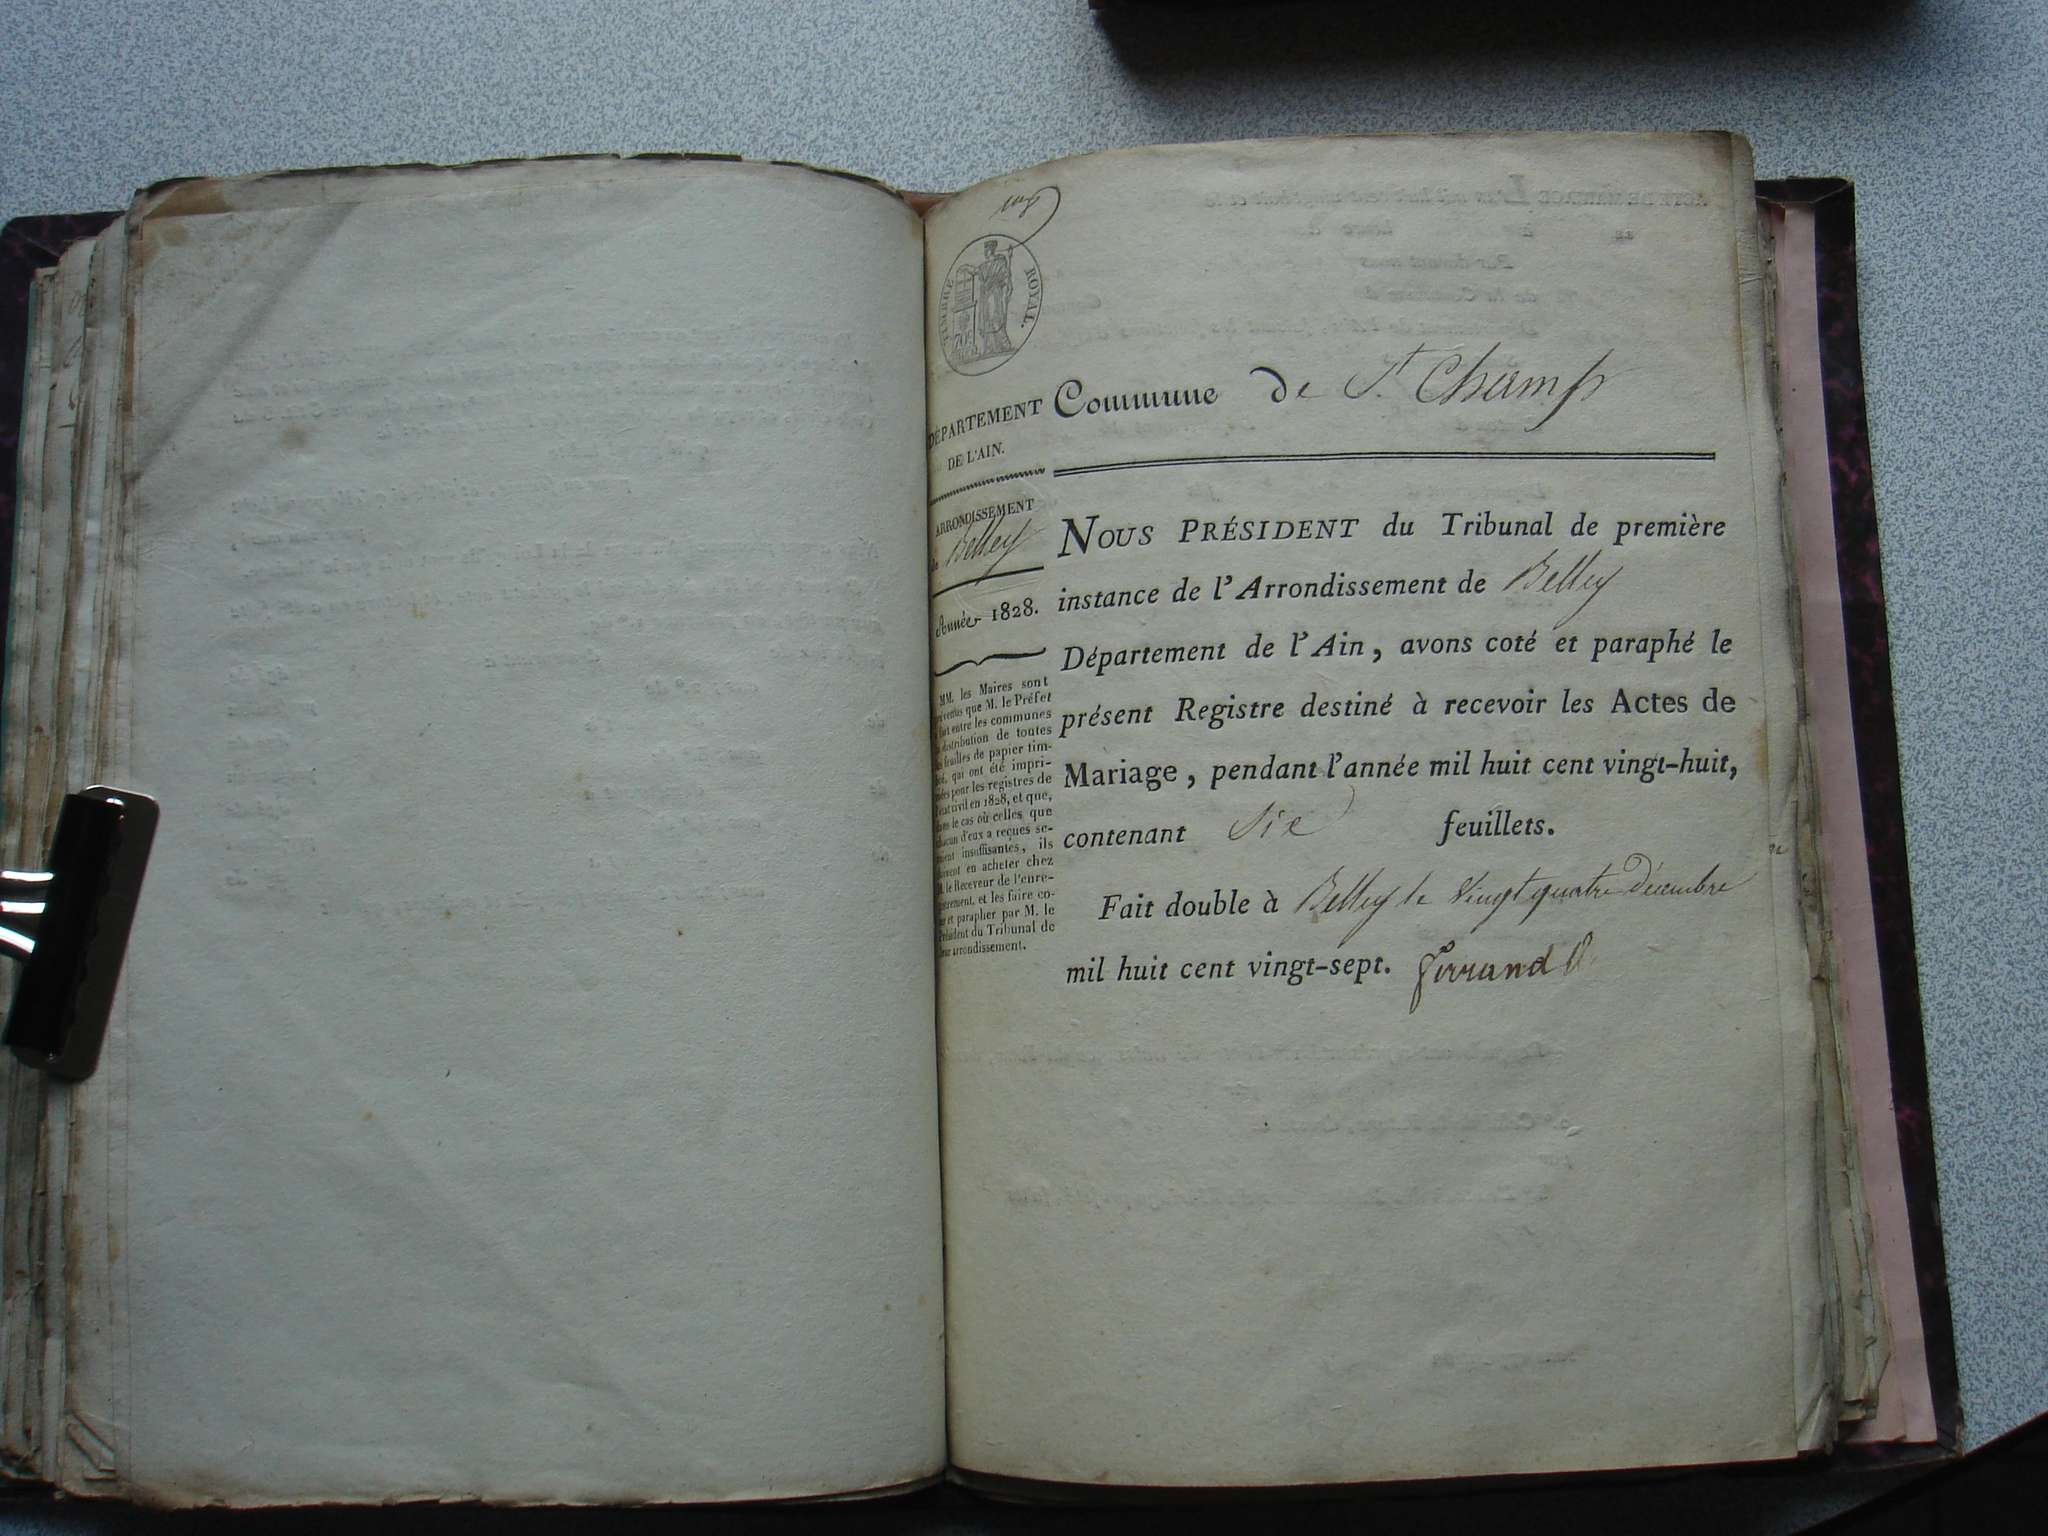 TIMBRE ROYAL.
DÉPARTEMENT
DE L'AIN.
ARRONDISSEMENT
de Belley
Année 1828.
MM. les Maires sont
prévenus que M. le Préfet
a fait entre les communes
la distribution de toutes
les feuilles de papier tim-
bré, qui ont été impri-
mées pour les registres de
l'état civil en 1828, et que,
dans le cas où celles que
chacun d'eux a reçues se-
raient insuffisantes, ils
doivent en acheter chez
M. le Receveur de l'enre-
gistrement, et les faire co-
ter et parapher par M. le
Président du Tribunal de
leur arrondissement.
Commune de St Champ
NOUS PRÉSIDENT du Tribunal de première
instance de l'Arrondissement de Belley
Département de l'Ain, avons coté et paraphé le
présent Registre destiné à recevoir les Actes de
Mariage, pendant l'année mil huit cent vingt-huit,
contenant Six feuillets.
Fait double à Belley le Vingt quatre Décembre
mil huit cent vingt-sept. Ferrand